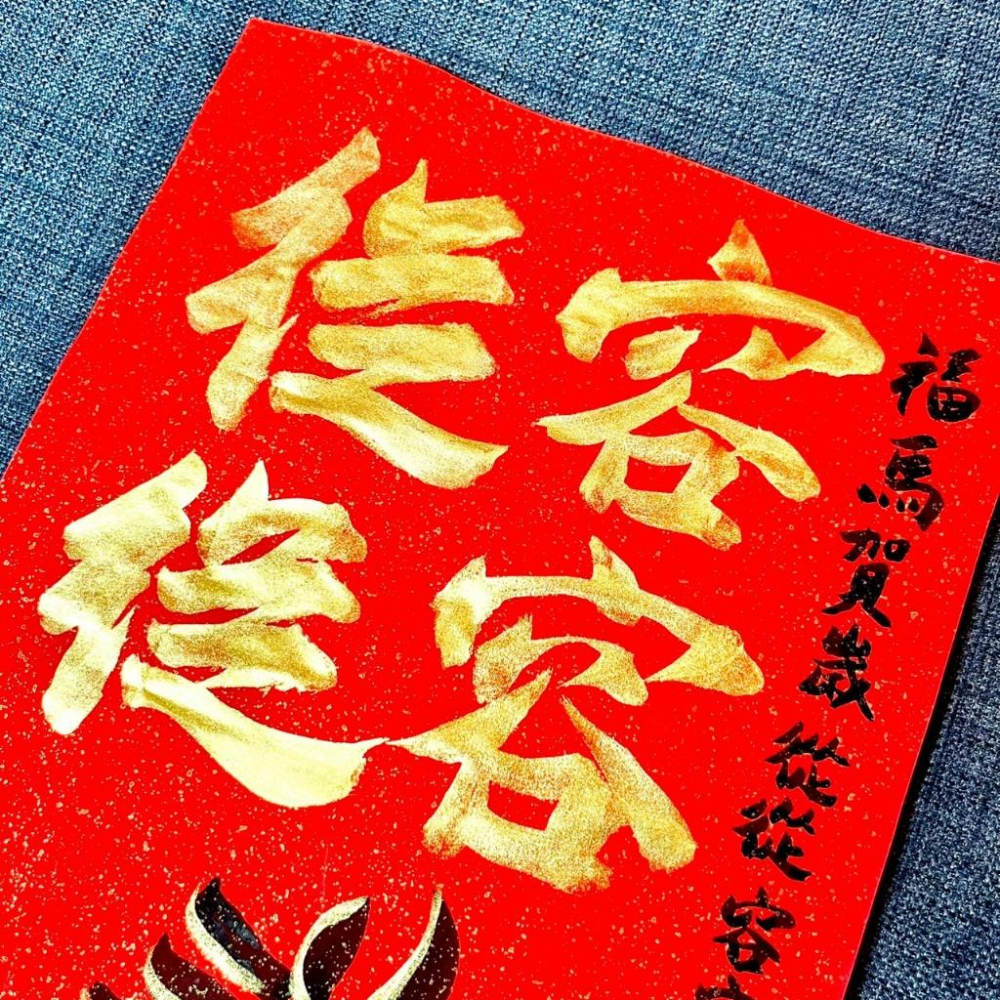 從容
從容
福馬加賀歲從從容